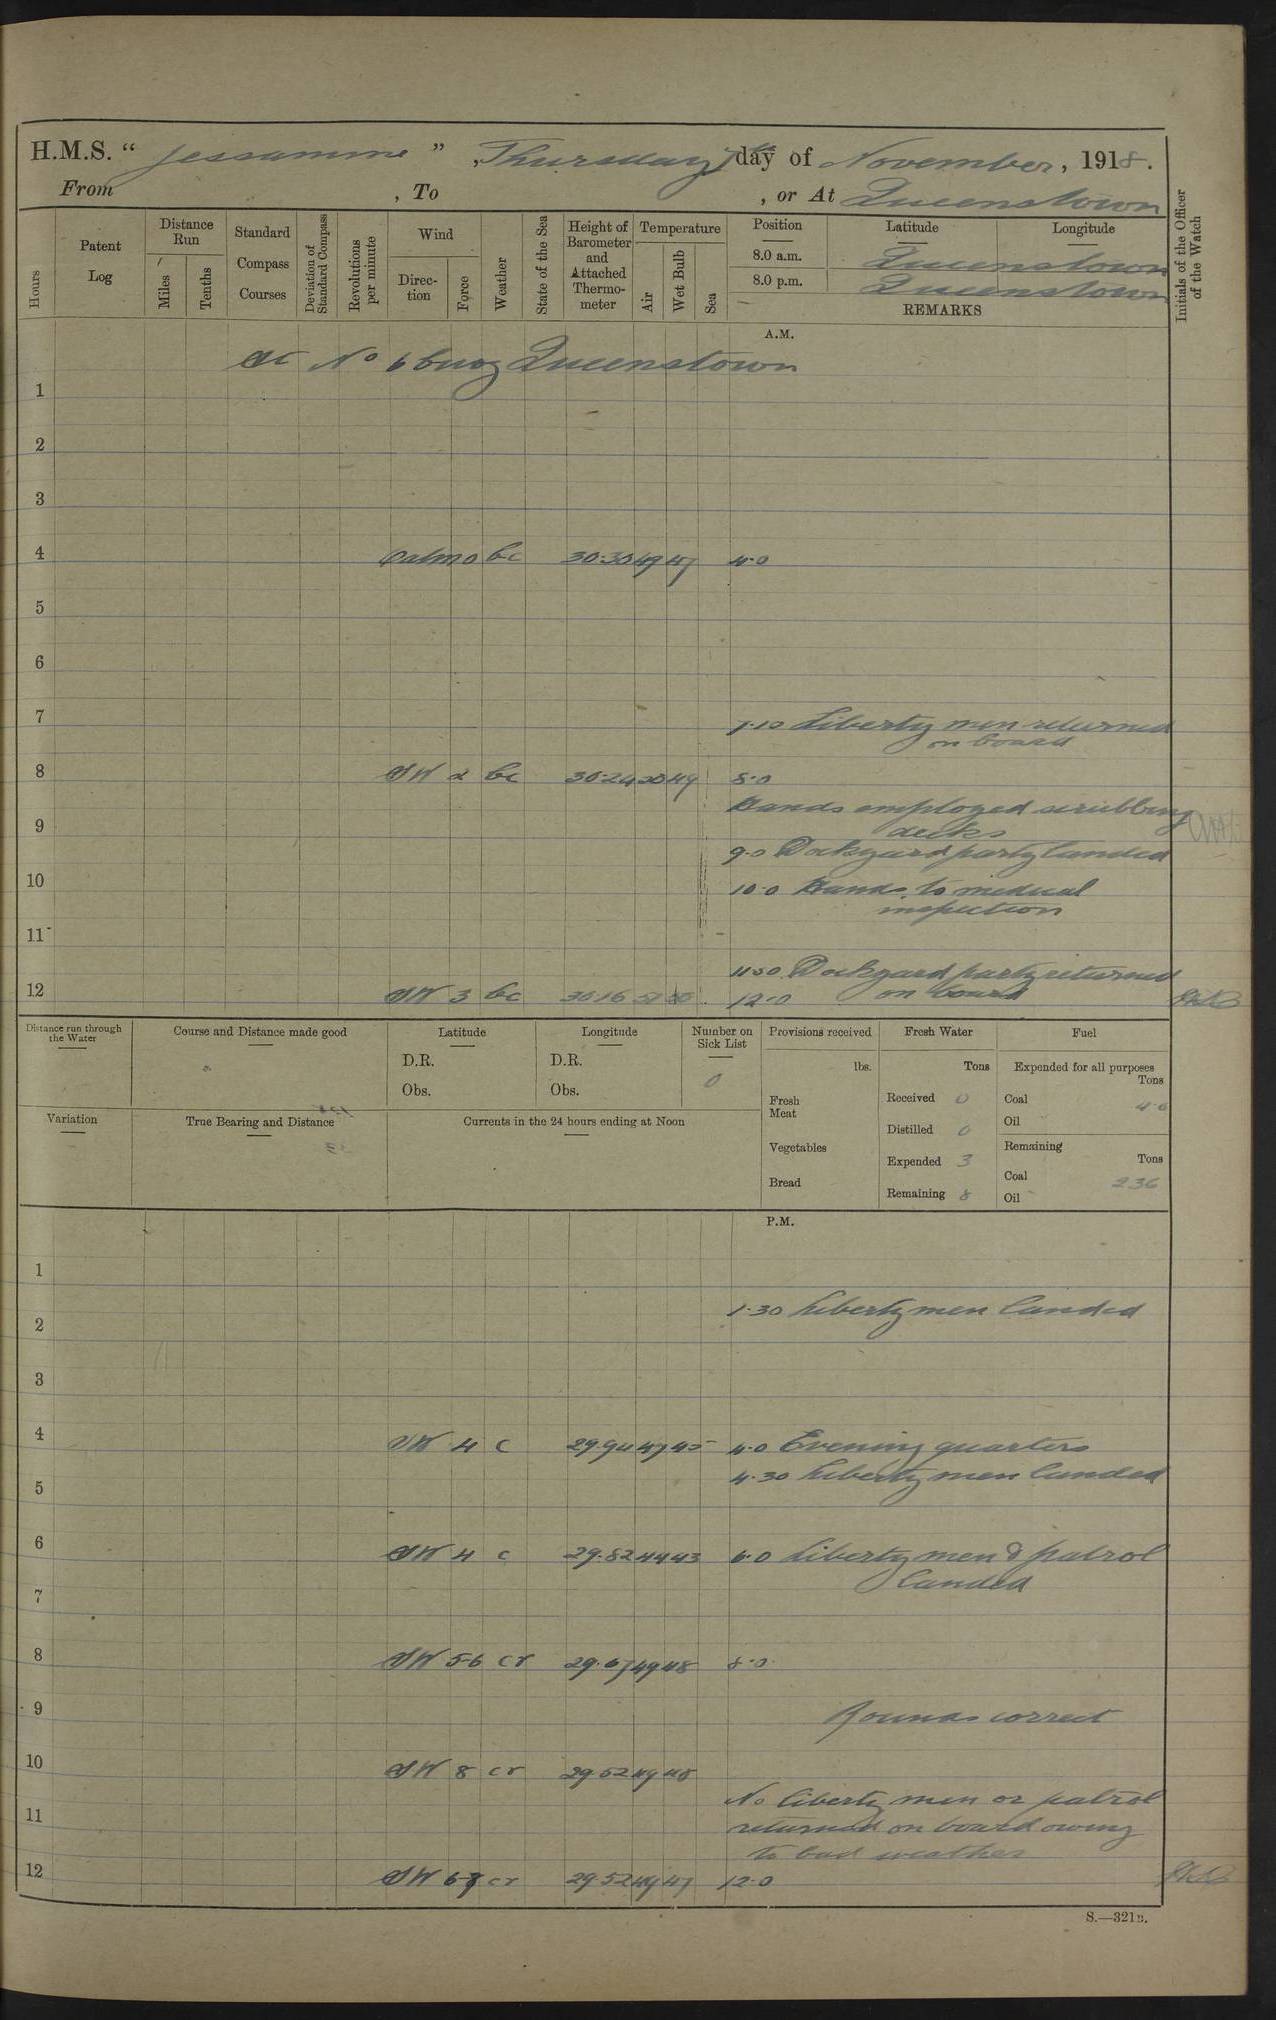 H.M.S. “ Jessamine ” , Thursday 7th day of November, 1918.
From , To , or At Queenstown
Hours
Patent Log
Distance Run
Miles
Tenths
Standard Compass Courses
Deviation of Standard Compass
Revolutions per minute
Wind
Direction
Force
Weather
State of the Sea
Height of Barometer and Attached Thermometer
Temperature
Air
Wet Bulb
Sea
Position Latitude Longitude
8.0 a.m. Queenstown
8.0 p.m. Queenstown
REMARKS
Initials of the Officer of the Watch
A.M.
At No 6 buoy Queenstown
1
2
3
4 Calm 0 bc 30.30 49 47 4.0
5
6
7 7.10 Liberty men returned
on board
8 SW 2 bc 30.24 50 49 8.0
Hands employed scrubbing
9 decks
9.0 Dockyard party landed
10 10.0 Hands to medical
inspection
11
11.50 Dockyard party returned
12 SW 3 bc 30.16 51 50 12.0 on board
Distance run through the Water
Course and Distance made good
Latitude
D.R.
Obs.
Longitude
D.R.
Obs.
Number on Sick List
0
Provisions received
lbs.
Fresh Meat
Vegetables
Bread
Fresh Water
Tons
Received 0
Distilled 0
Expended 3
Remaining 8
Fuel
Expended for all purposes
Tons
Coal 4.0
Oil
Remaining
Tons
Coal 236
Oil
Variation
True Bearing and Distance
Currents in the 24 hours ending at Noon
P.M.
1
1.30 Liberty men landed
2
3
4 SW 4 c 29.94 47 45 4.0 Evening quarters
4.30 Liberty men landed
5
6 SW 4 c 29.82 44 43 6.0 Liberty men & patrol
landed
7
8 SW 5-6 cr 29.67 49 48 8.0
9 Rounds correct
10 SW 8 cr 29.52 49 48
No liberty men or patrol
11 returned on board owing
to bad weather
12 SW 6-7 cr 29.52 49 47 12.0
S.—321B.